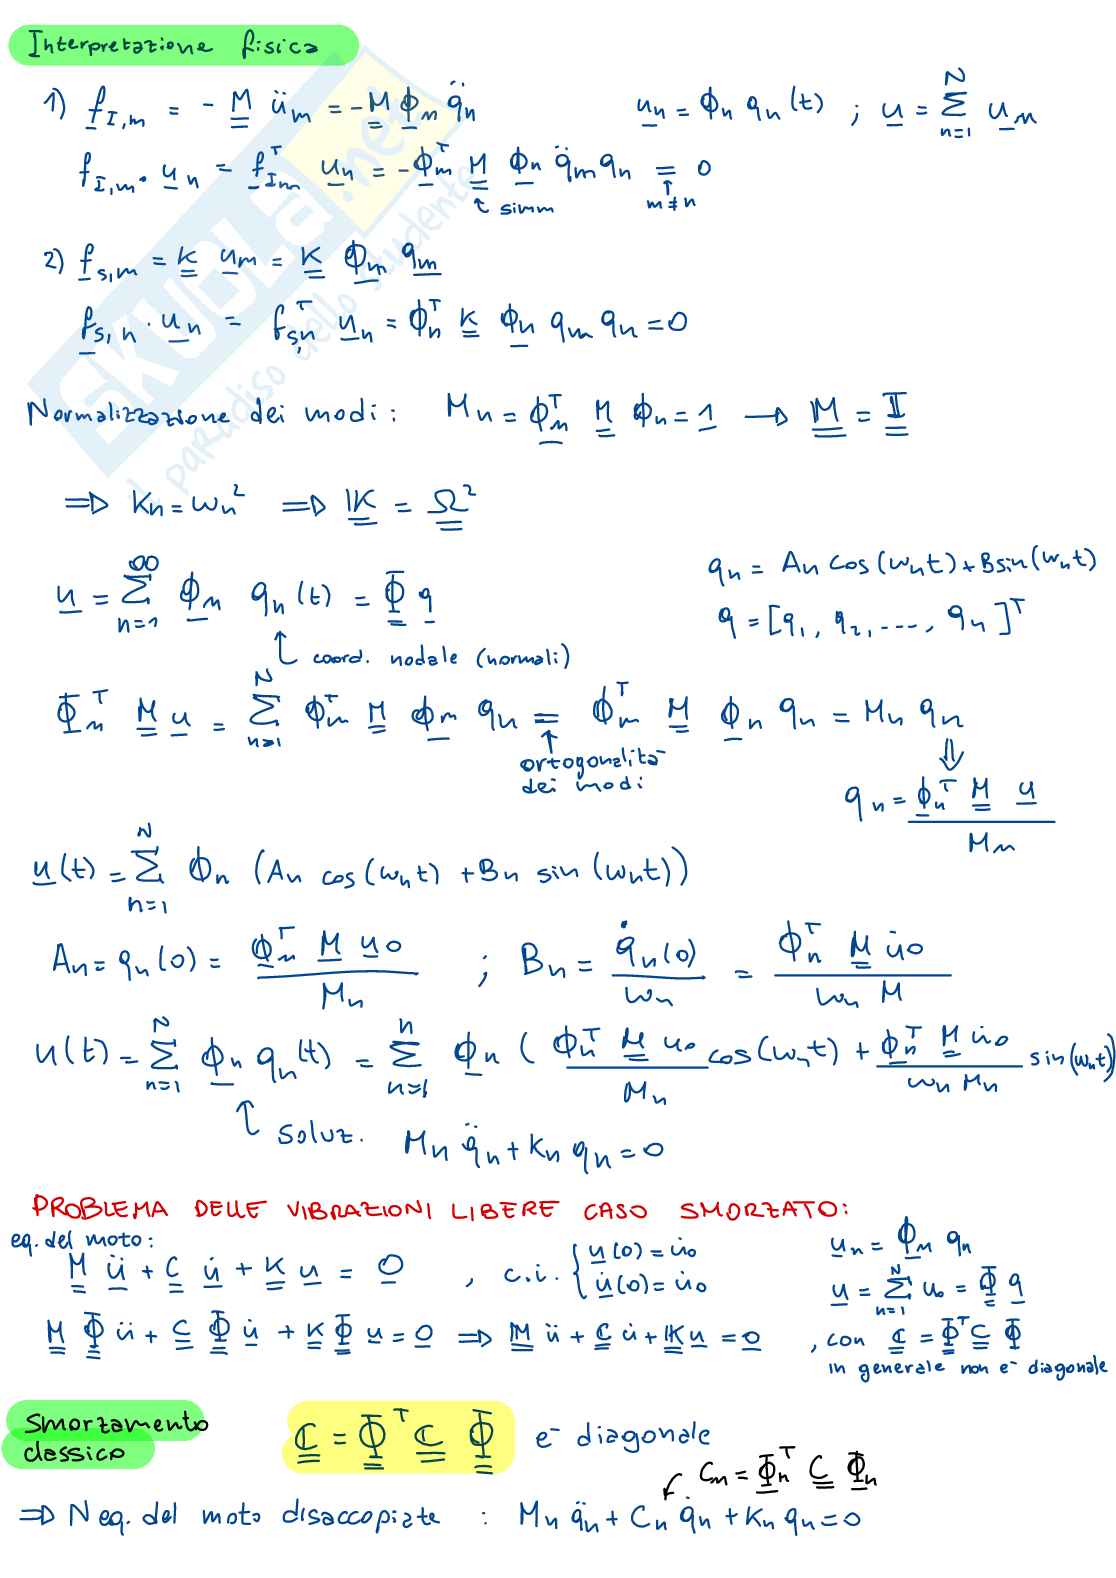 Interpretazione fisica
1) f_I,m = - M ü_m = - M ϕ_m q̈_n    u_n = ϕ_n q_n (t) ; u = Σ_{n=1}^{N} u_n
f_I,m · u_n = f_Im^T u_n = - ϕ_m^T M ϕ_n q̈_m q_n = 0
↑ simm    ↑ m≠n
2) f_s,m = K u_m = K ϕ_m q_m
f_s,n · u_n = f_s,n^T u_n = ϕ_n^T K ϕ_n q_m q_n = 0
Normalizzazione dei modi: M_n = ϕ_n^T M ϕ_n = 1 → M = I
⇒ K_n = ω_n^2 ⇒ K = Ω^2
u = Σ_{n=1}^{∞} ϕ_n q_n (t) = Φ q    q_n = A_n cos(ω_n t) + B sin(ω_n t)
q = [q_1, q_2, ---, q_n]^T
↑ coord. nodale (normali)
Φ_n^T M u = Σ_{n=1}^{N} ϕ_m^T M ϕ_m q_n = ϕ_m^T M ϕ_n q_n = M_n q_n
↑ ortogonalità
dei modi
⇓
q_n = ϕ_n^T M u / M_n
u(t) = Σ_{n=1}^{N} ϕ_n (A_n cos(ω_n t) + B_n sin(ω_n t))
A_n = q_n(0) = ϕ_n^T M u_0 / M_n ; B_n = q̇_n(0) / ω_n = ϕ_n^T M u̇_0 / ω_n M
u(t) = Σ_{n=1}^{N} ϕ_n q_n(t) = Σ_{n=1}^{n} ϕ_n ( ϕ_n^T M u_0 / M_n cos(ω_n t) + ϕ_n^T M u̇_0 / ω_n M_n sin(ω_n t)
↑ soluz. M_n q̈_n + K_n q_n = 0
PROBLEMA DELLE VIBRAZIONI LIBERE CASO SMORZATO:
eq. del moto:
M ü + C u̇ + K u = 0 , c.i. { u(0) = u̇_0
u̇(0) = u̇_0
u_n = ϕ_m q_n
u = Σ_{n=1}^{N} u_0 = Φ q
M Φ ü + C Φ u̇ + K Φ u = 0 ⇒ M ü + C u̇ + K u = 0 , con C = Φ^T C Φ
in generale non è diagonale
Smorzamento
classico
C = Φ^T C Φ è diagonale
C_n = Φ_n^T C Φ_n
⇒ N eq. del moto disaccopiate : M_n q̈_n + C_n q̇_n + K_n q_n = 0
SKUOLA.net
il paradiso dello studente